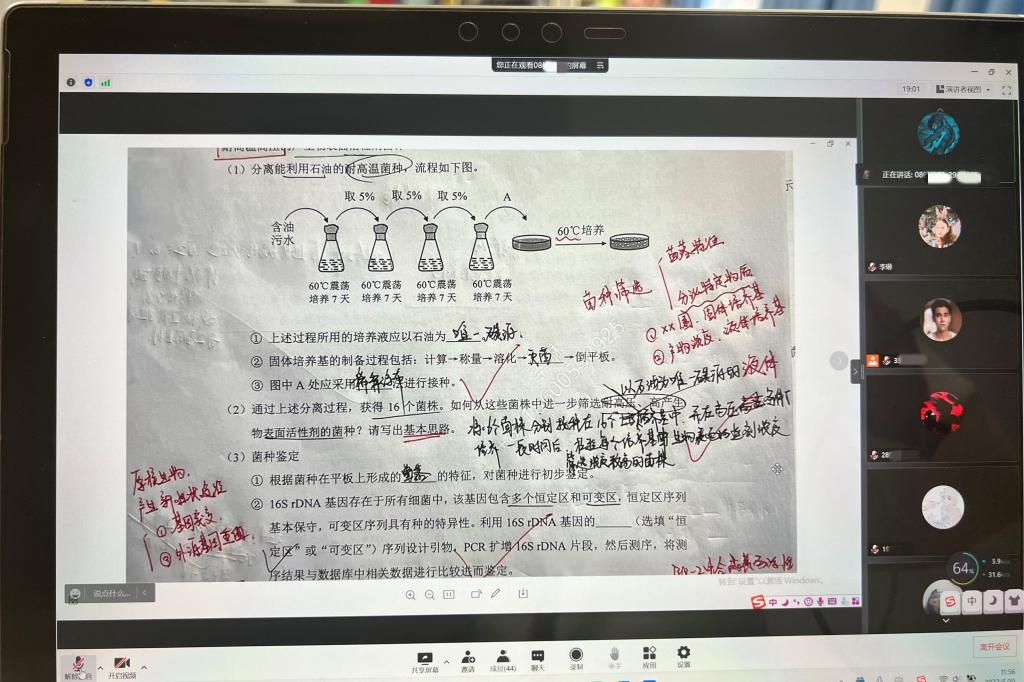 您正在观看08 的屏幕
19:01 演讲者视图
正在讲话: 08
(1) 分离能利用石油的耐高温菌种，流程如下图。
取 5% 取 5% 取 5% A
含油
污水
60℃培养
60℃震荡 60℃震荡 60℃震荡 60℃震荡
培养 7 天 培养 7 天 培养 7 天 培养 7 天
菌落特征
菌种筛选
分泌特定物质
① xx圈：固体培养基
② 产物浓度：液体培养基
① 上述过程所用的培养液应以石油为唯一碳源.
② 固体培养基的制备过程包括：计算→称量→溶化→灭菌→倒平板。
③ 图中 A 处应采用 法进行接种。
以石油为唯一碳源的液体
(2) 通过上述分离过程，获得 16 个菌株。如何从这些菌株中进一步筛选耐高压、高产生
物表面活性剂的菌种？请写出基本思路。
将16个菌株分别接种在16个 培养基中
培养一段时间后
筛选浓度较高的菌株
(3) 菌种鉴定
① 根据菌种在平板上形成的菌落的特征，对菌种进行初步鉴定。
② 16S rDNA 基因存在于所有细菌中，该基因包含多个恒定区和可变区，恒定区序列
基本保守，可变区序列具有种的特异性。利用 16S rDNA 基因的______（选填“恒
定区”或“可变区”）序列设计引物，PCR 扩增 16S rDNA 片段，然后测序，将测
序结果与数据库中相关数据进行比较进而鉴定。
原核生物
产生新性状途径
① 基因突变
② 外源基因重组
李琳
转到"设置"以激活 Windows。
说点什么...
64%
3.9
31.6
中
中
解除静音 开启视频 共享屏幕 邀请 成员(44) 聊天 录制 举手 应用 设置 离开会议
11:56